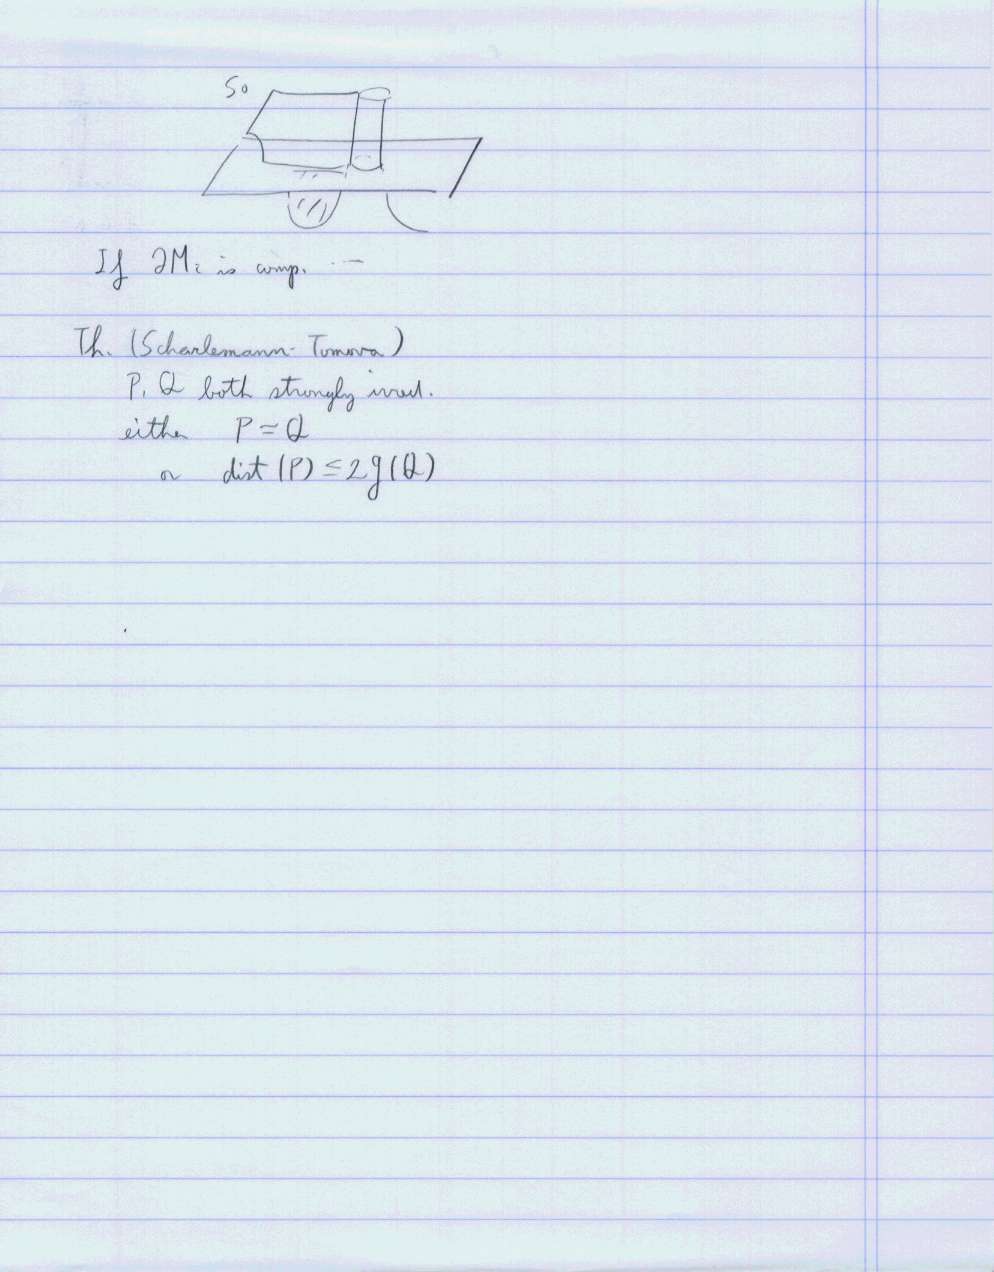 So
If ∂Mi is comp. ...—
Th. (Scharlemann-Tomova)
P, Q both strongly irred.
either P ≃ Q
or dist(P) ≤ 2g(Q)